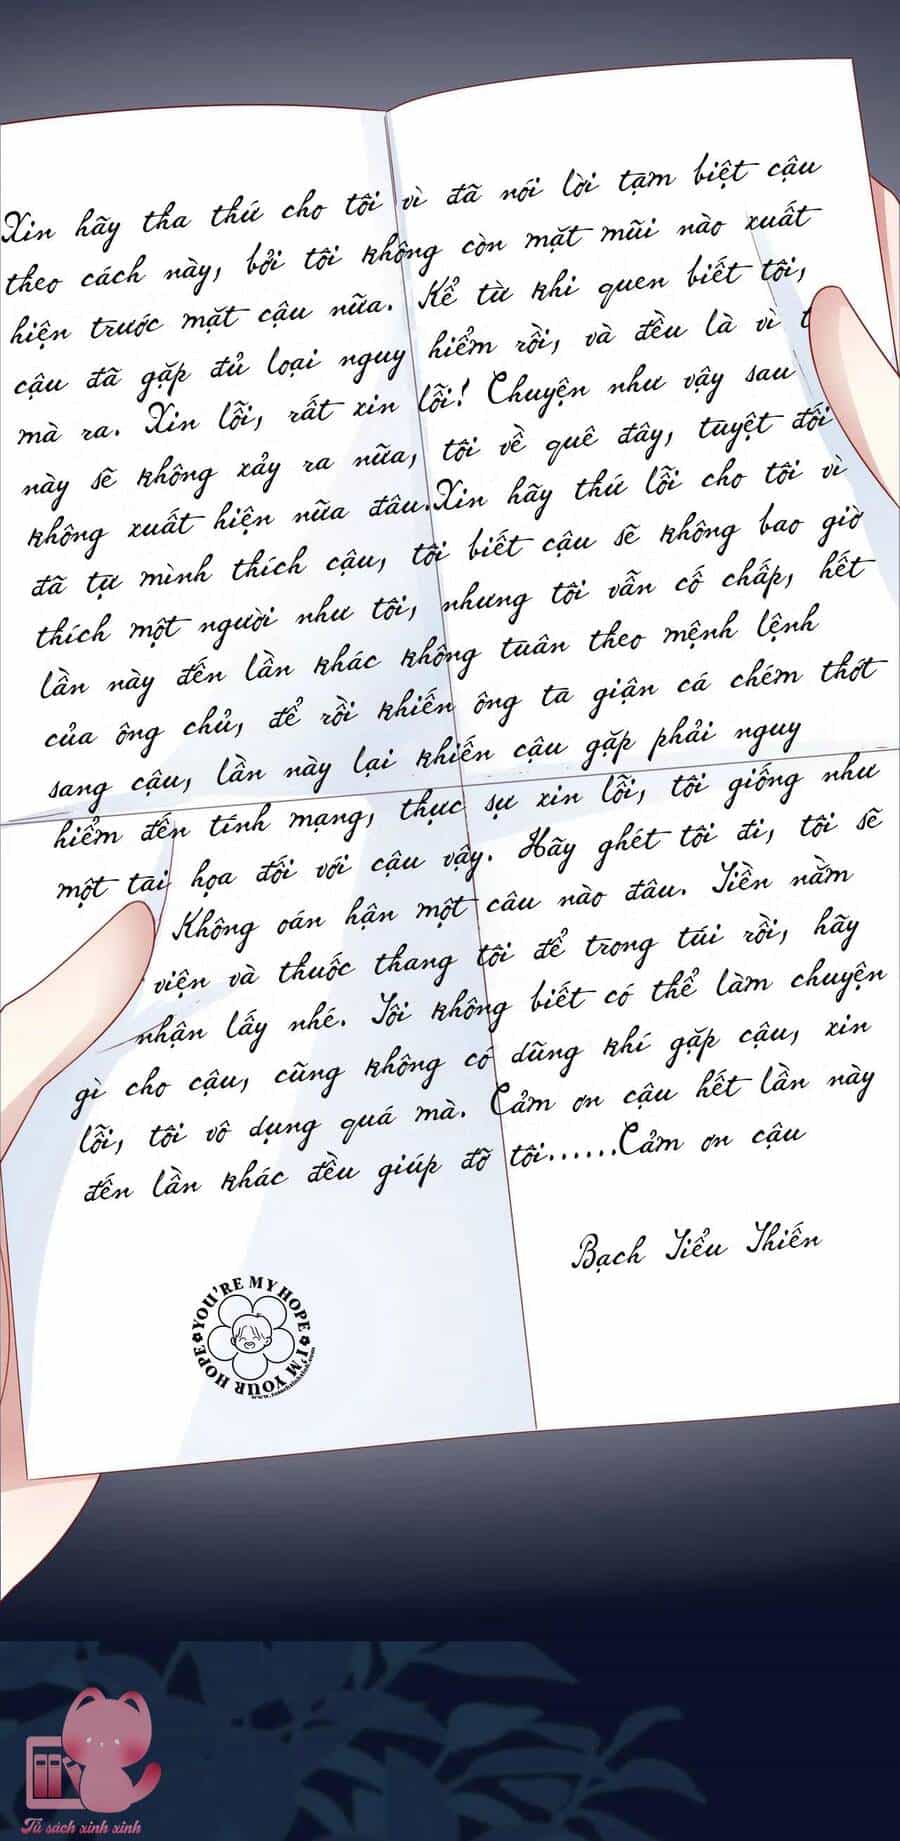 Xin hãy tha thứ cho tôi vì đã nói lời tạm biệt cậu
theo cách này, bởi tôi không còn mặt mũi nào xuất
hiện trước mặt cậu nữa. Kể từ khi quen biết tôi,
cậu đã gặp đủ loại nguy hiểm rồi, và đều là vì t
mà ra. Xin lỗi, rất xin lỗi! Chuyện như vậy sau
này sẽ không xảy ra nữa, tôi về quê đây, tuyệt đối
không xuất hiện nữa đâu.Xin hãy thứ lỗi cho tôi vì
đã tự mình thích cậu, tôi biết cậu sẽ không bao giờ
thích một người như tôi, nhưng tôi vẫn cố chấp, hết
lần này đến lần khác không tuân theo mệnh lệnh
của ông chủ, để rồi khiến ông ta giận cá chém thớt
sang cậu, lần này lại khiến cậu gặp phải nguy
hiểm đến tính mạng, thực sự xin lỗi, tôi giống như
một tai họa đối với cậu vậy. Hãy ghét tôi đi, tôi sẽ
Không oán hận một câu nào đâu. Tiền nằm
viện và thuốc thang tôi để trong túi rồi, hãy
nhận lấy nhé. Tôi không biết có thể làm chuyện
gì cho cậu, cũng không có dũng khí gặp cậu, xin
lỗi, tôi vô dụng quá mà. Cảm ơn cậu hết lần này
đến lần khác đều giúp đỡ tôi......Cảm ơn cậu
Bạch Tiểu Thiến
YOU'RE MY HOPE
I'M YOUR HOPE
Tủ sách xinh xinh